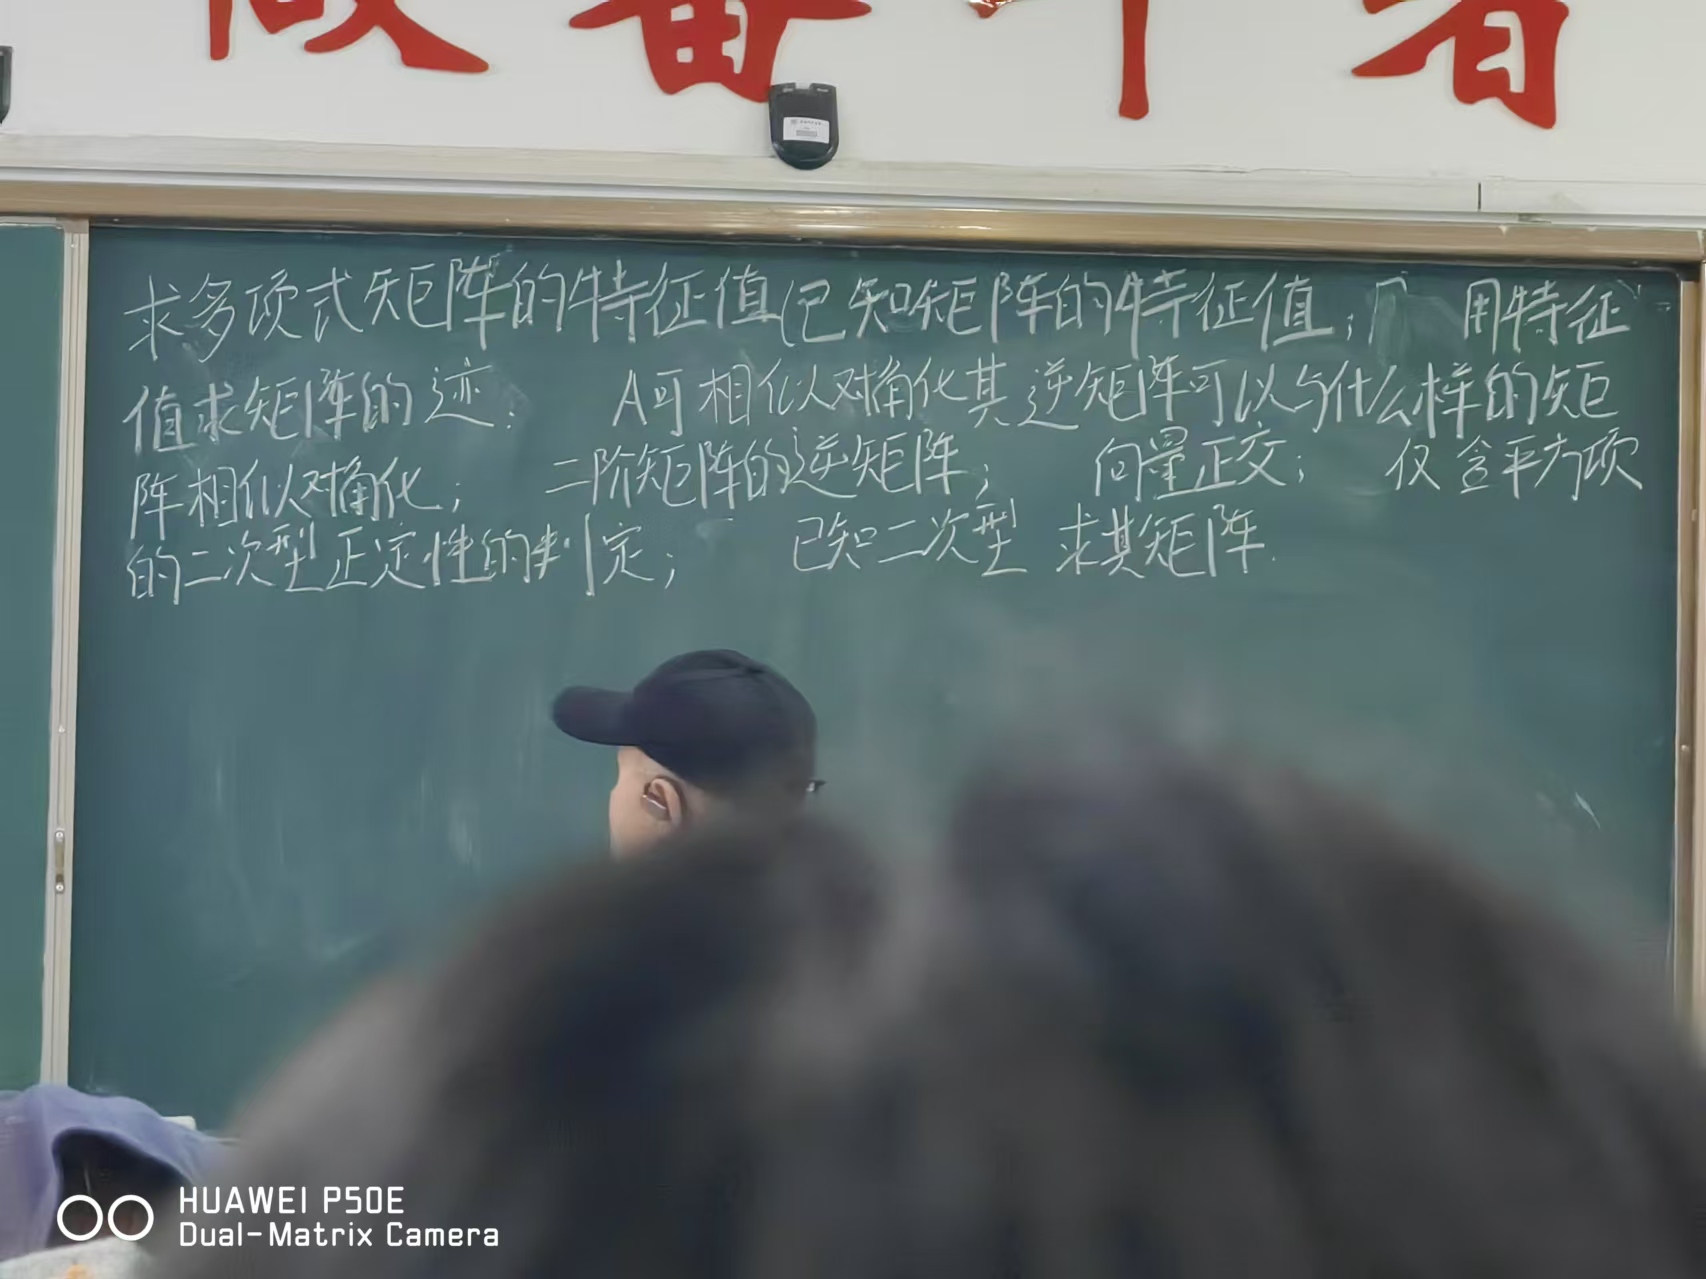 求多项式矩阵的特征值(已知矩阵的特征值; 用特征
值求矩阵的迹; A可相似对角化其逆矩阵可以与什么样的矩
阵相似对角化; 二阶矩阵的逆矩阵; 向量正交; 仅含平方项
的二次型正定性的判定; 已知二次型 求其矩阵.
HUAWEI P50E
Dual-Matrix Camera